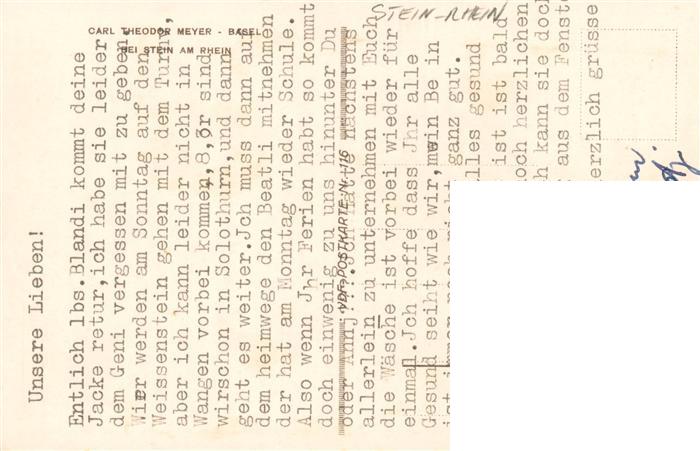 CARL THEODOR MEYER - BASEL
BEI STEIN AM RHEIN
STEIN-RHEIN
VDF-POSTKARTE Nr. 116
Unsere Lieben!
Entlich lbs.Blandi kommt deine
Jacke retur,ich habe sie leider
dem Geni vergessen mit zu geben
Wier werden am Sonntag auf den
Weissenstein gehen mit dem Turn,
aber ich kann leider nicht in
Wangen vorbei kommen,8,0r sind
wirschon in Solothurn,und dann
geht es weiter.Jch muss dann auf
dem heimwege den Beatli mitnehmen
der hat am Monntag wieder Schule.
Also wenn Jhr Ferien habt so kommt
doch einwenig zu uns hinunter Du
oder Annj Jch hätte nächstens
allerlein zu unternehmen mit Euch
die Wäsche ist vorbei wieder für
einmal.Jch hoffe dass Jhr alle
Gesund seiht wie wir,mein Be in
ist immer noch nicht ganz gut.
lles gesund
ist ist bald
och herzlichen
h kann sie doc
aus dem Fenste
erzlich grüsse